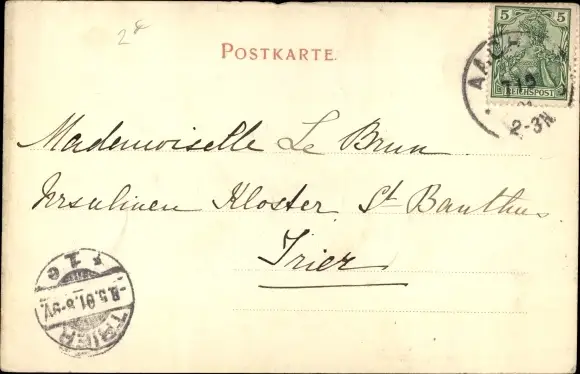 2 8
POSTKARTE.
5 5
REICHSPOST
AACH
2-3N
Mademoiselle Le Brun
Ursulinen Kloster, St Banthus
Trier
TRIER
-8.5.01.8-9V.
* 1 c